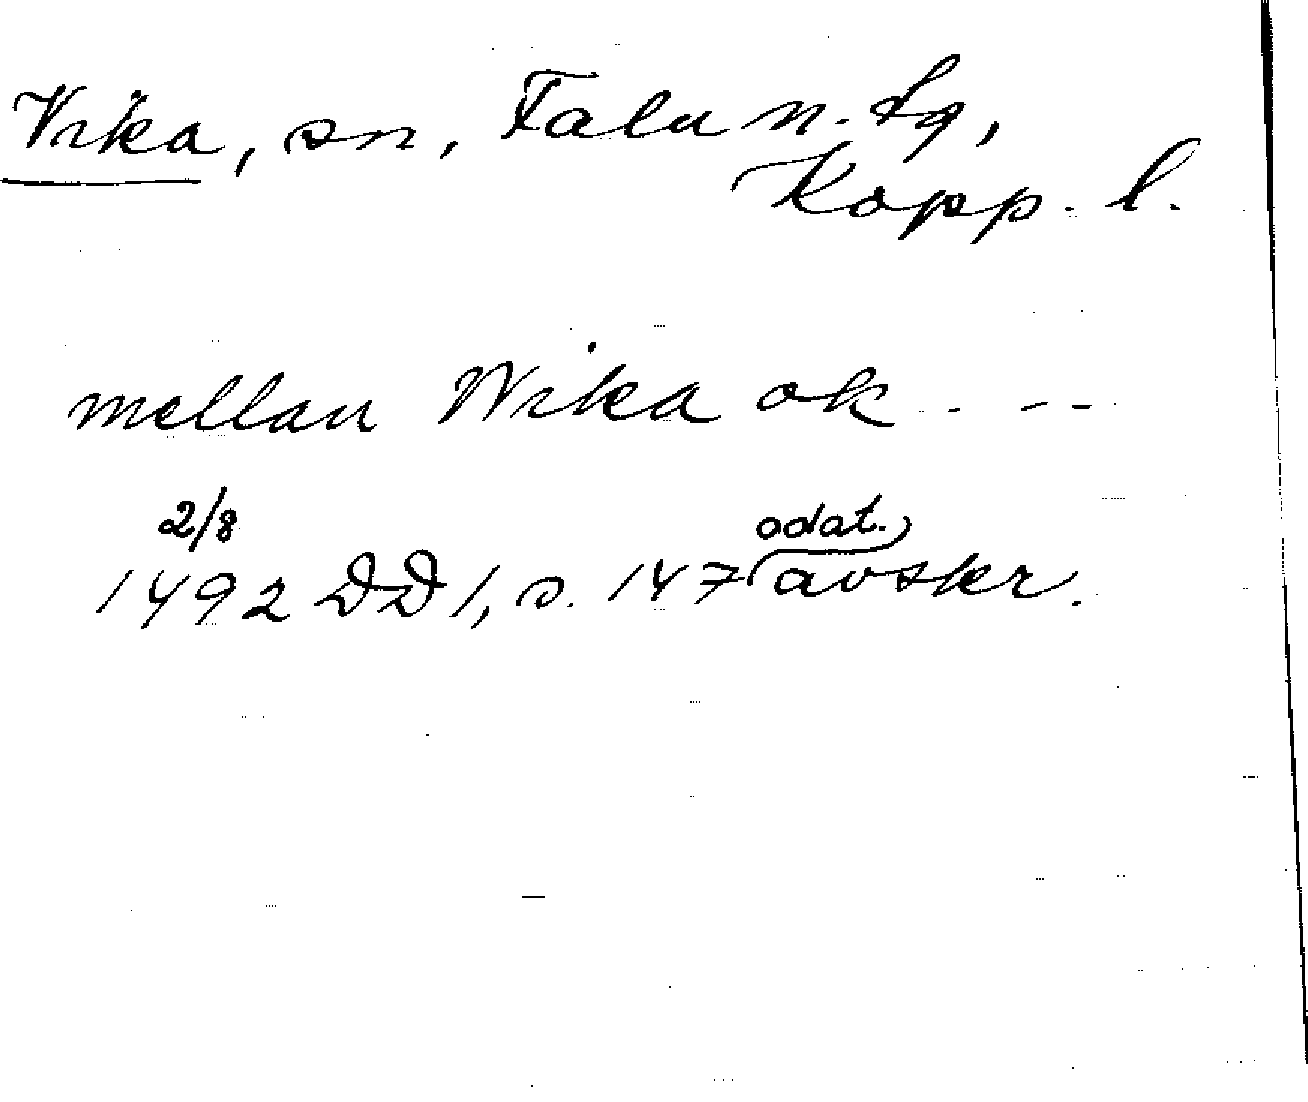 Vika, sn, Falu n. tg,
Kopp. l.
mellan Wika ok - - -
2/8 odat.
1492 DD 1, s. 147 avskr.